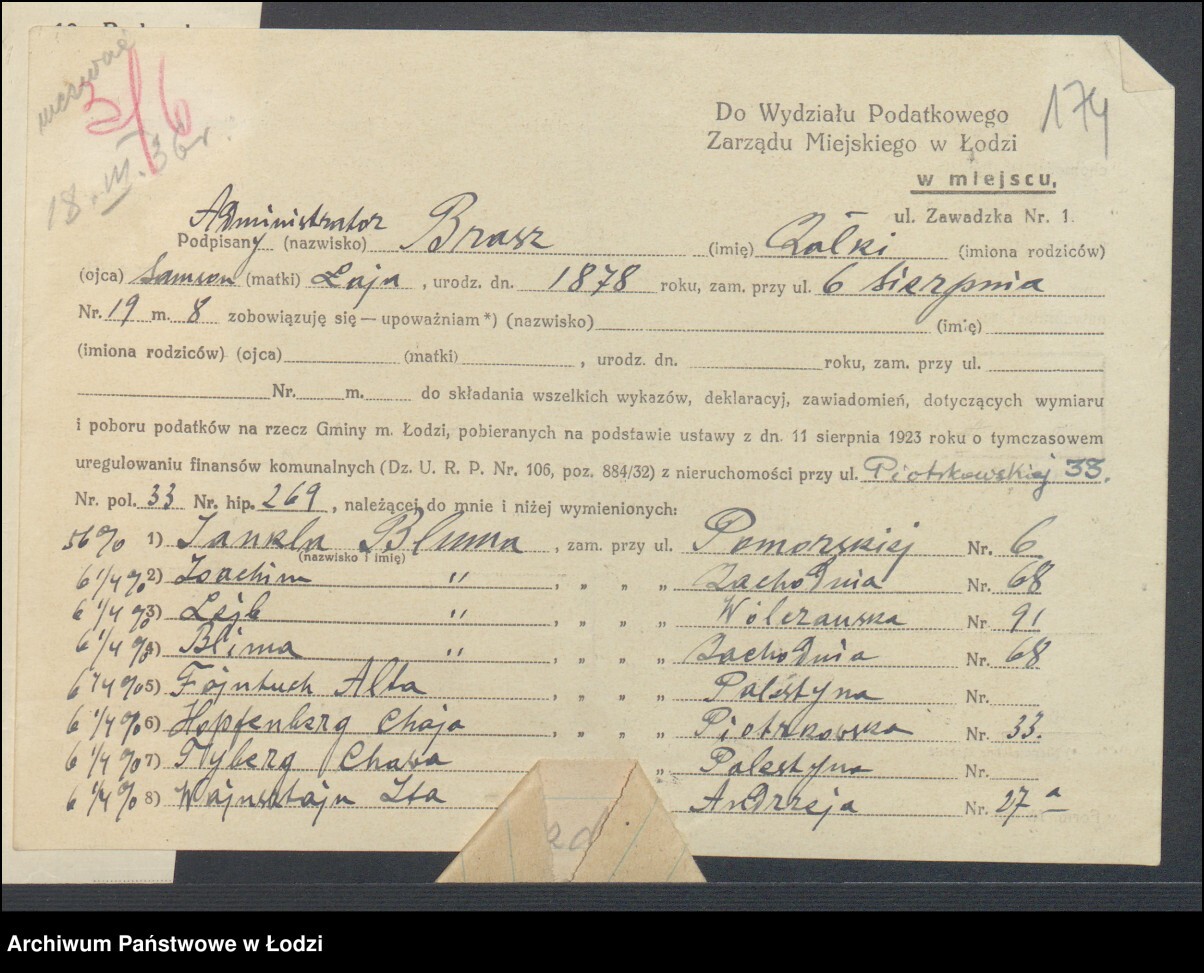 wezwać
5/6
18.III.36r.
174
Do Wydziału Podatkowego
Zarządu Miejskiego w Łodzi
w miejscu,
ul. Zawadzka Nr. 1.
Administrator
Podpisany (nazwisko) Brasz (imię) Całki (imiona rodziców)
(ojca) Samson (matki) Łaja , urodz. dn. 1878 roku, zam. przy ul. 6 Sierpnia
Nr. 19 m. 8 zobowiązuję się — upoważniam *) (nazwisko) (imię)
(imiona rodziców) (ojca) (matki) , urodz. dn. roku, zam. przy ul.
Nr. m. do składania wszelkich wykazów, deklaracyj, zawiadomień, dotyczących wymiaru
i poboru podatków na rzecz Gminy m. Łodzi, pobieranych na podstawie ustawy z dn. 11 sierpnia 1923 roku o tymczasowem
uregulowaniu finansów komunalnych (Dz. U. R. P. Nr. 106, poz. 884/32) z nieruchomości przy ul. Piotrkowskiej 33.
Nr. pol. 33 Nr. hip. 269 , należącej do mnie i niżej wymienionych:
56% 1) Jankla Bluma , zam. przy ul. Pomorskiej Nr. 6
(nazwisko i imię)
6 1/4 % 2) Joachim " , „ „ „ Zachodnia Nr. 68
6 1/4 % 3) Lejb " , „ „ „ Wólczańska Nr 91
6 1/4 % 4) Blima " , „ „ „ Zachodnia Nr. 68
6 1/4 % 5) Fojntuch Alta , „ „ „ Palestyna Nr.
6 1/4 % 6) Hopfenberg Chaja , „ „ „ Piotrkowska Nr. 33.
6 1/4 % 7) Flyberg Chawa „ Palestyna Nr.
6 1/4 % 8) Wajnsztajn Ita Andrzeja Nr. 27 a
Archiwum Państwowe w Łodzi